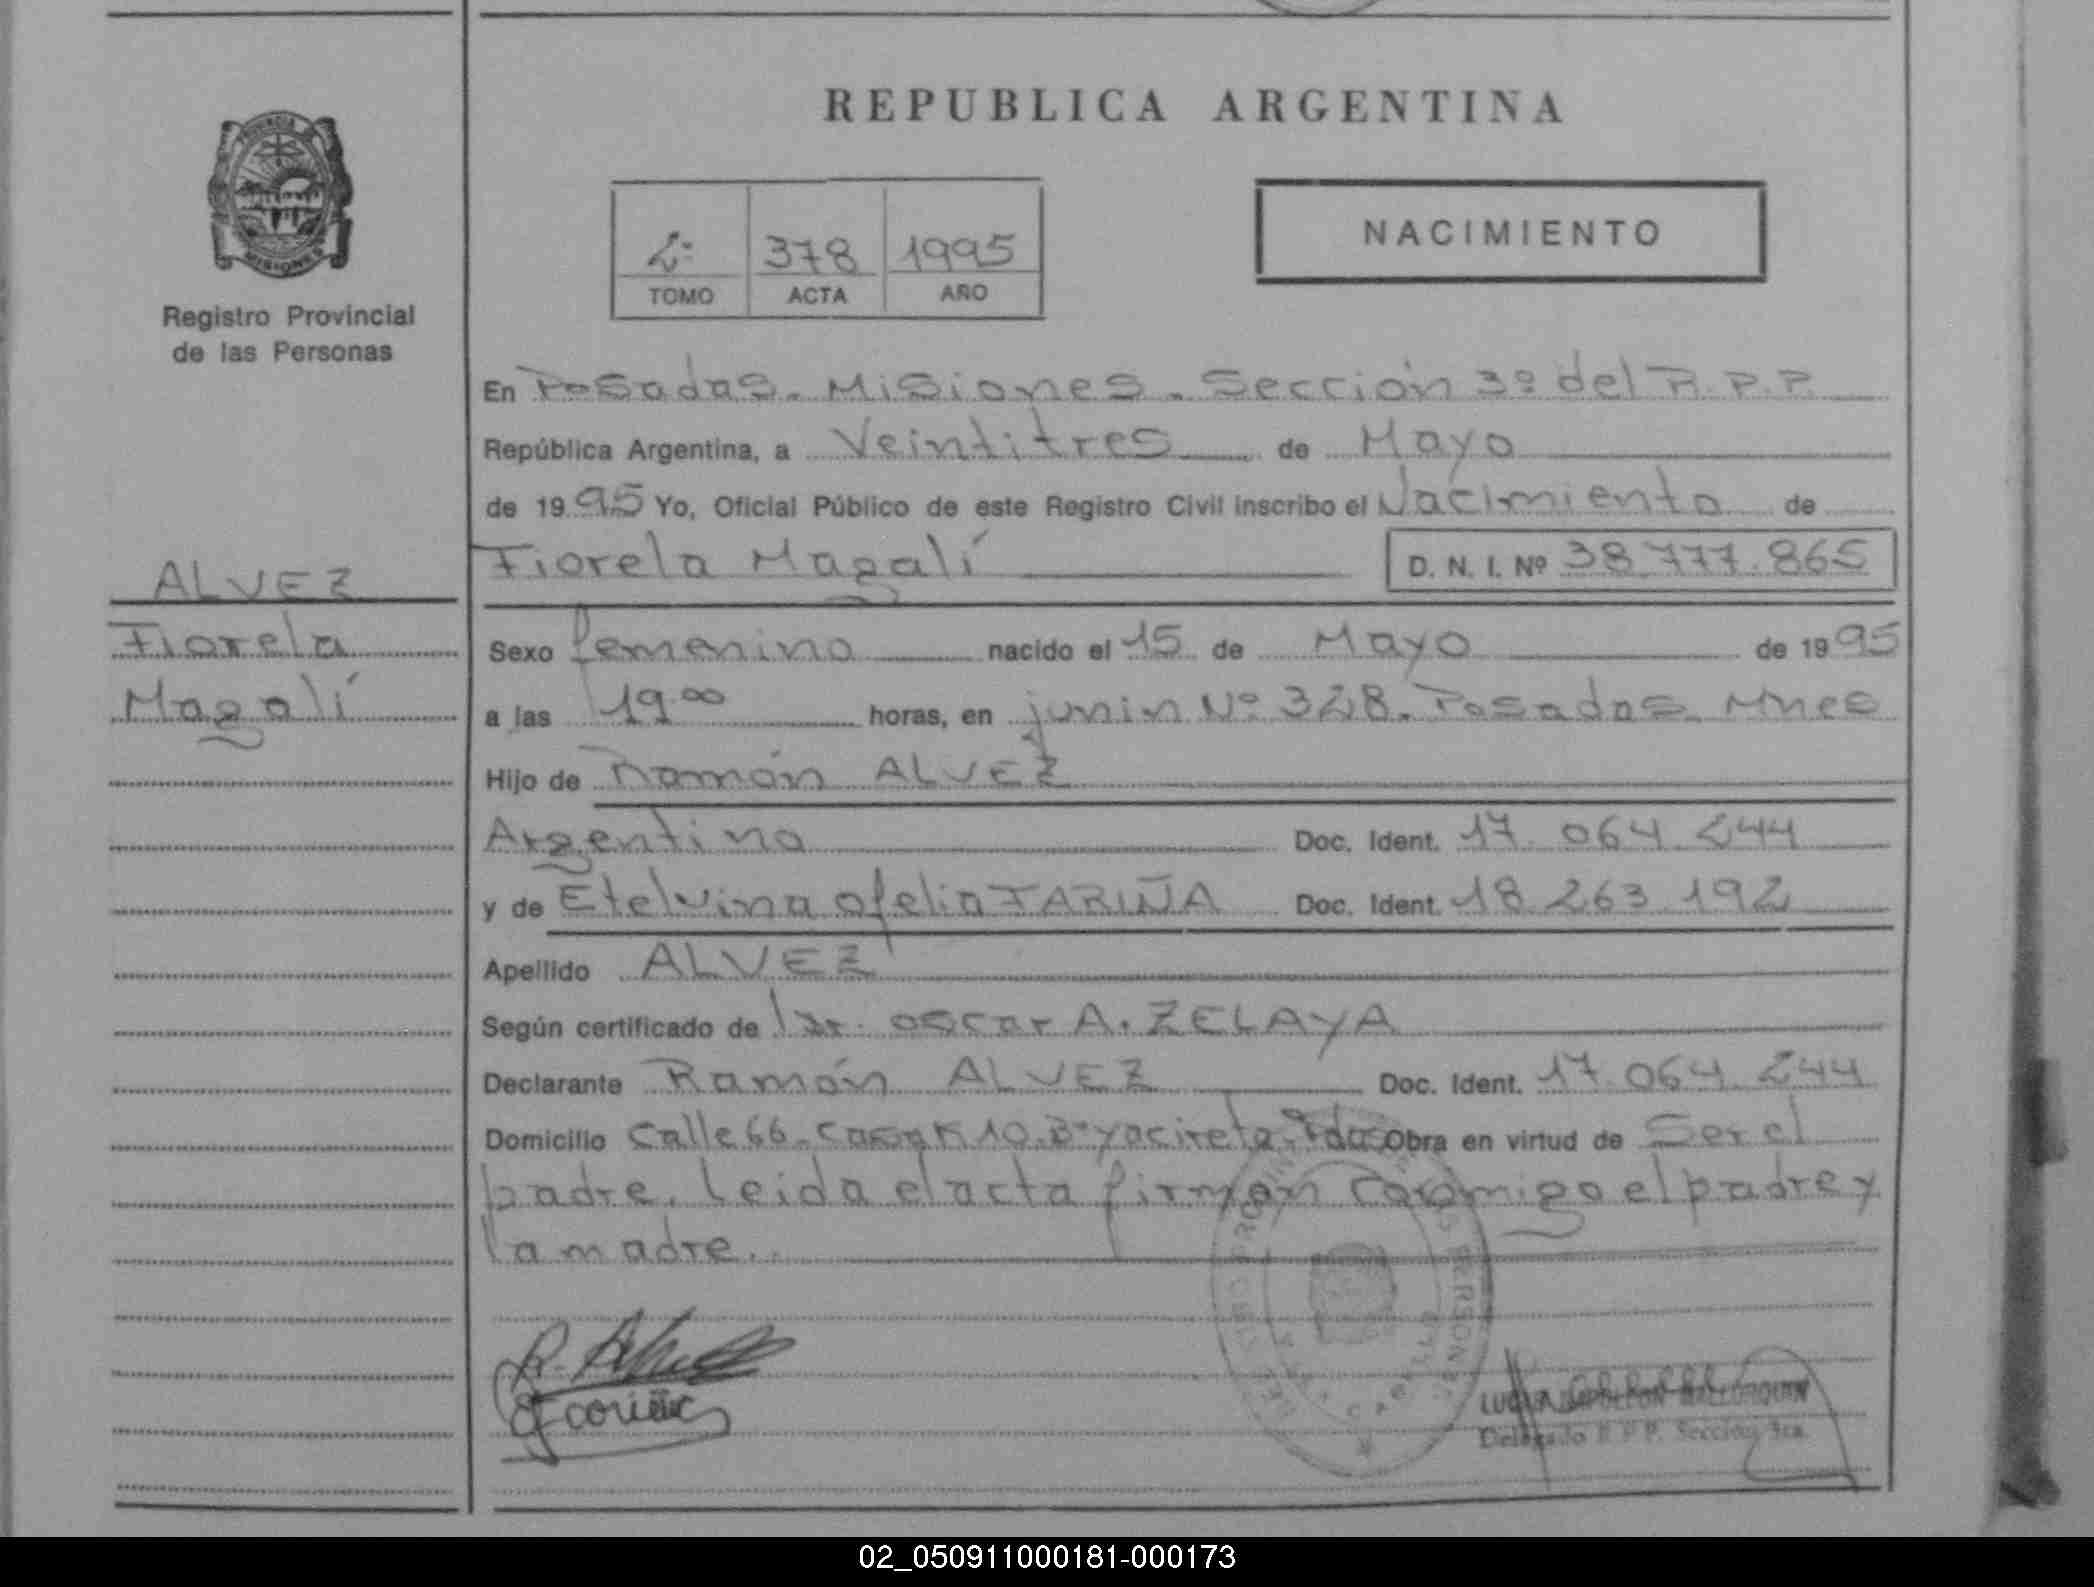 REPUBLICA ARGENTINA
PROVINCIA DE
MISIONES
Registro Provincial
de las Personas
2º 378 1995
TOMO ACTA AÑO
NACIMIENTO
En Posadas. Misiones. Sección 3º del R.P.P.
República Argentina, a Veintitres de Mayo
de 1995 Yo, Oficial Público de este Registro Civil inscribo el Nacimiento de
Fiorela Magalí D. N. I. Nº 38.777.865
ALVEZ
Fiorela
Magalí
Sexo femenino nacido el 15 de Mayo de 1995
a las 19 00 horas, en junin Nº 328. Posadas. Mnes
Hijo de Ramón ALVEZ
Argentino Doc. Ident. 17.064.244
y de Etelvina ofelia FARIÑA Doc. Ident. 18.263.192
Apellido ALVEZ
Según certificado de Dr. oscar A. ZELAYA
Declarante Ramón ALVEZ Doc. Ident. 17.064.244
Domicilio Calle 66. Casa K 10. Bº yacireta. Pdas Obra en virtud de Ser el
padre. Leida el acta firman conmigo el padre y
la madre.
R. Alvez
Delegado R.P.P. Sección 3ra.
02_050911000181-000173